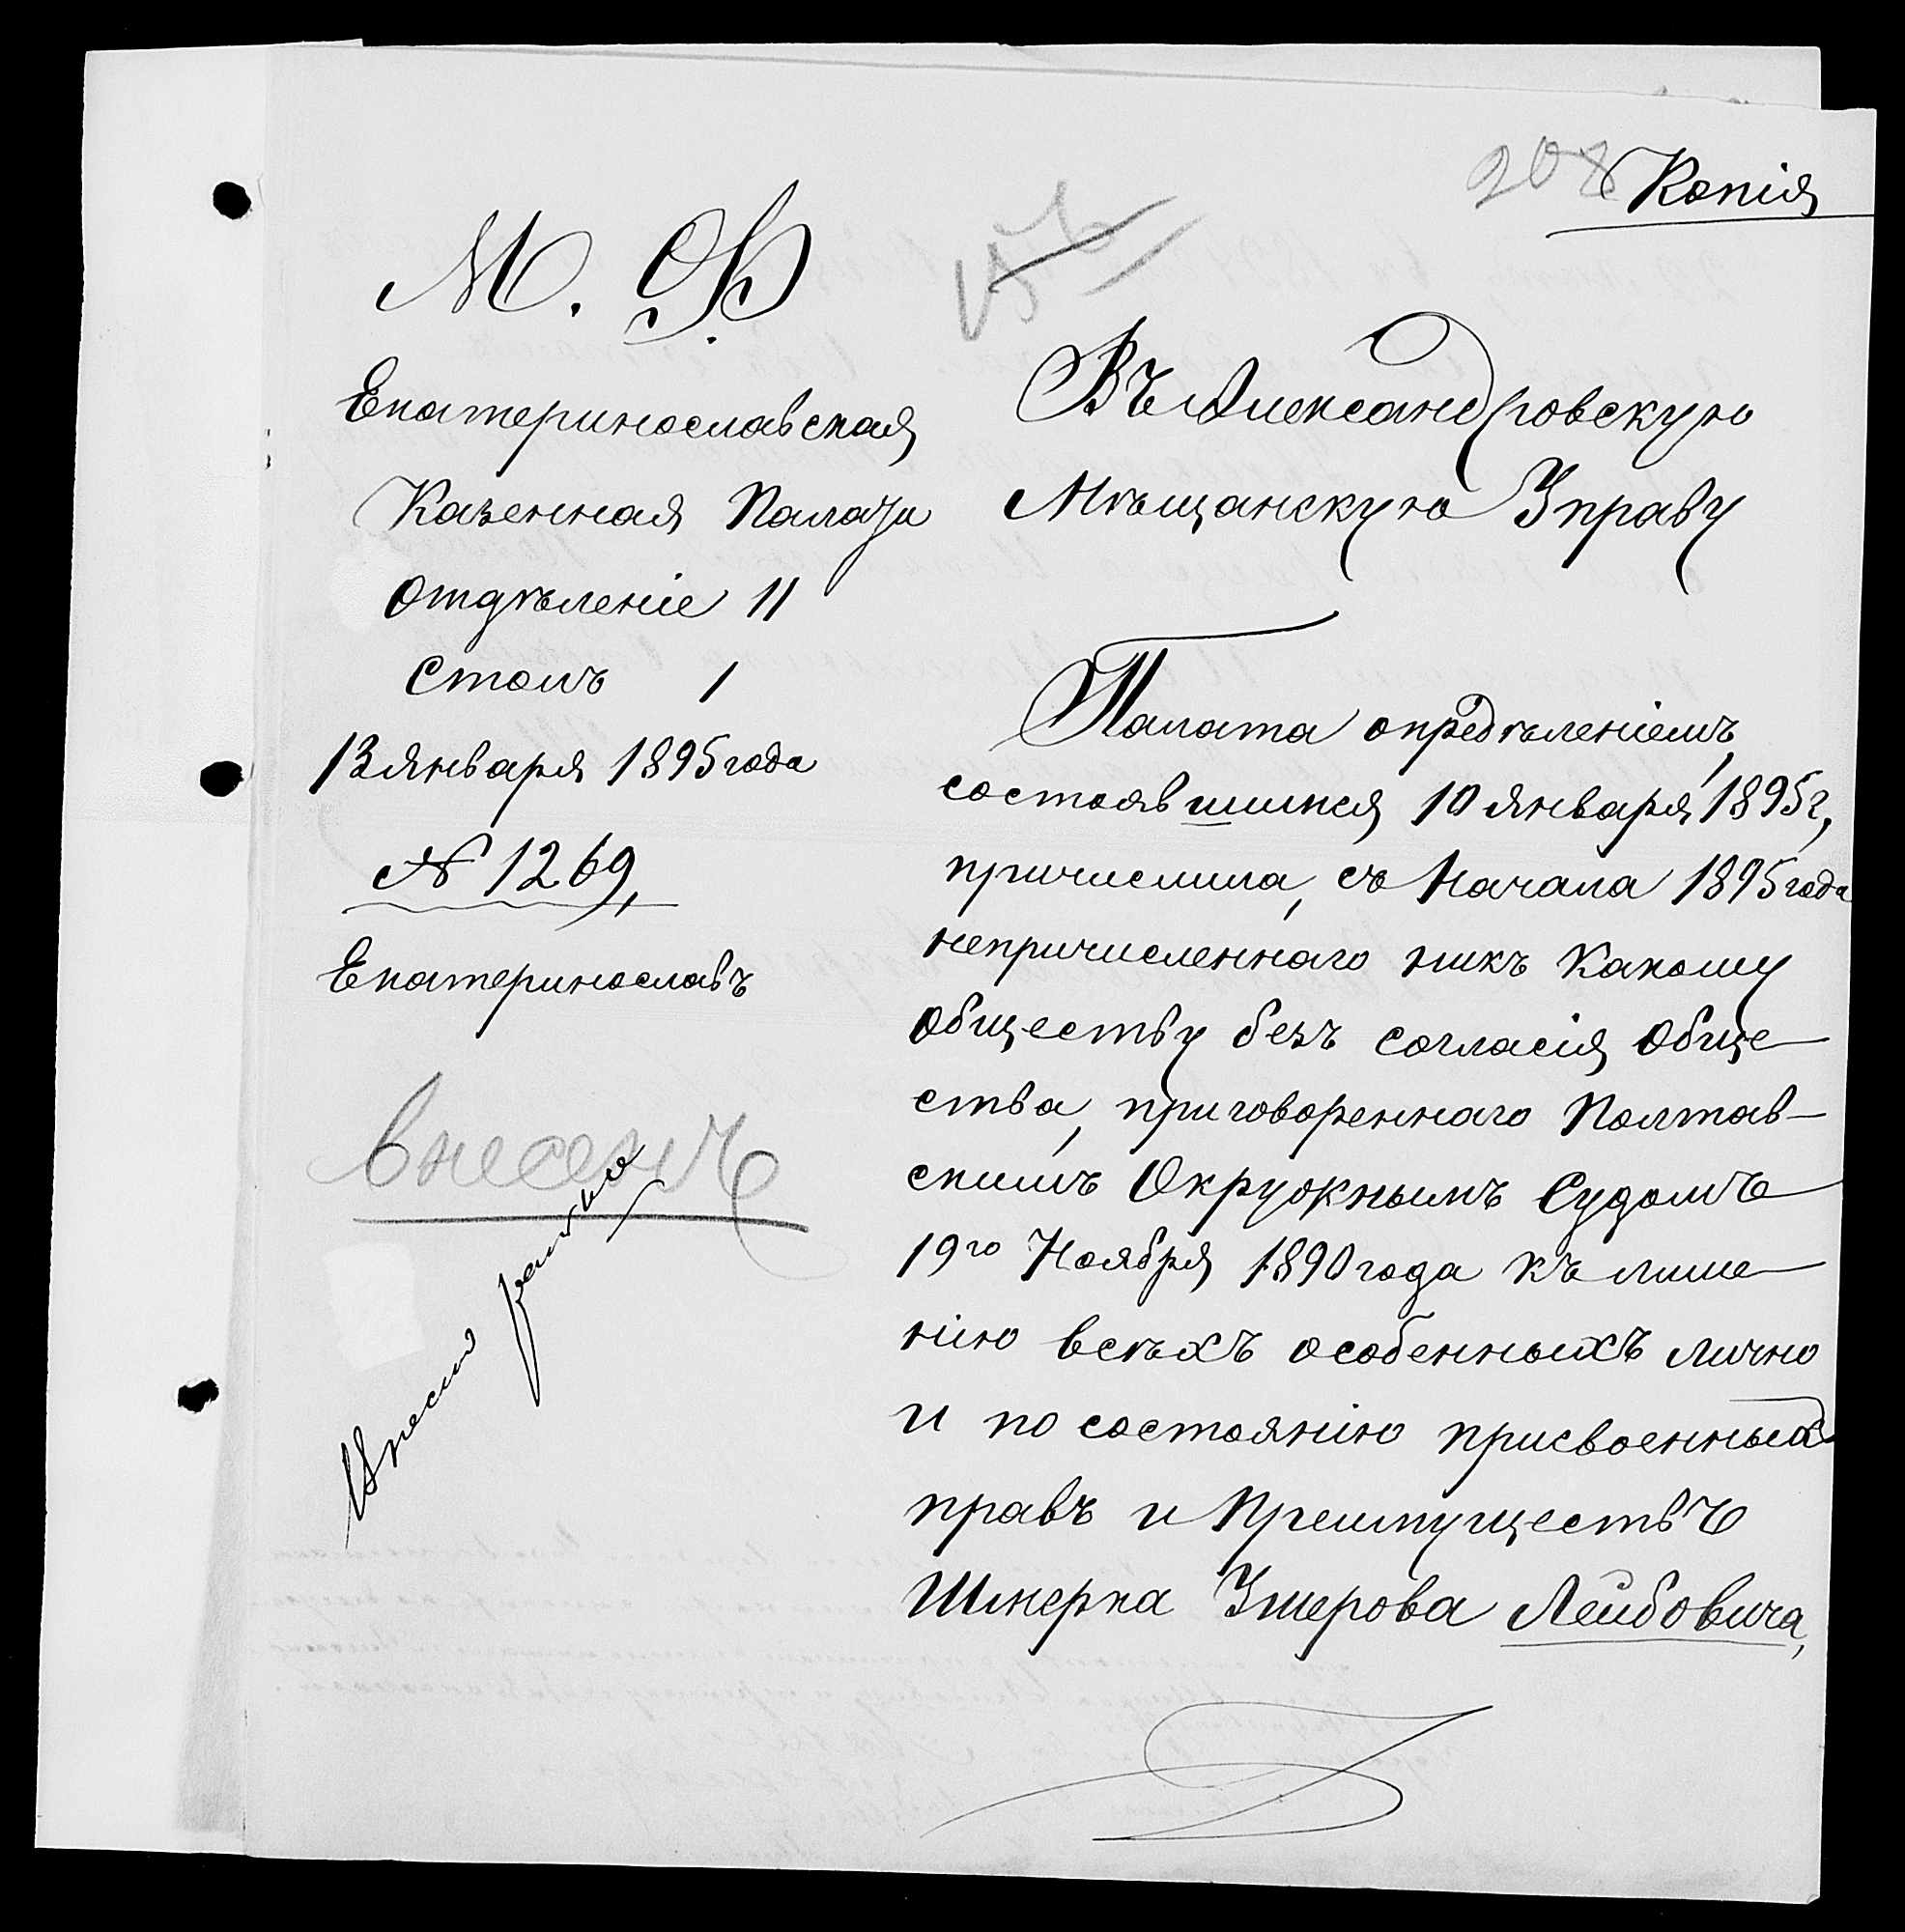 208 Копія
М. Ф.
Екатеринославская
Казенная Палата
Отдѣленіе II
Столъ 1
13 Января 1895 года
№ 1269,
Екатеринославъ
внесенъ
Внесенъ
Въ Александровскую
Мѣщанскую Управу
Палата опредѣленіемъ,
состоявшимся 10 Января 1895 г,
причислила, съ Начала 1895 года
непричисленнаго никъ Какому
Обществу безъ согласія Обще-
ства, приговореннаго Полтав-
скимъ Окружнымъ Судомъ
19го Ноября 1890 года къ лише-
нію всѣхъ особенныхъ лично
и по состоянію присвоенныхъ
правъ и Преимуществъ
Шмерка Умерова Лейбовича,